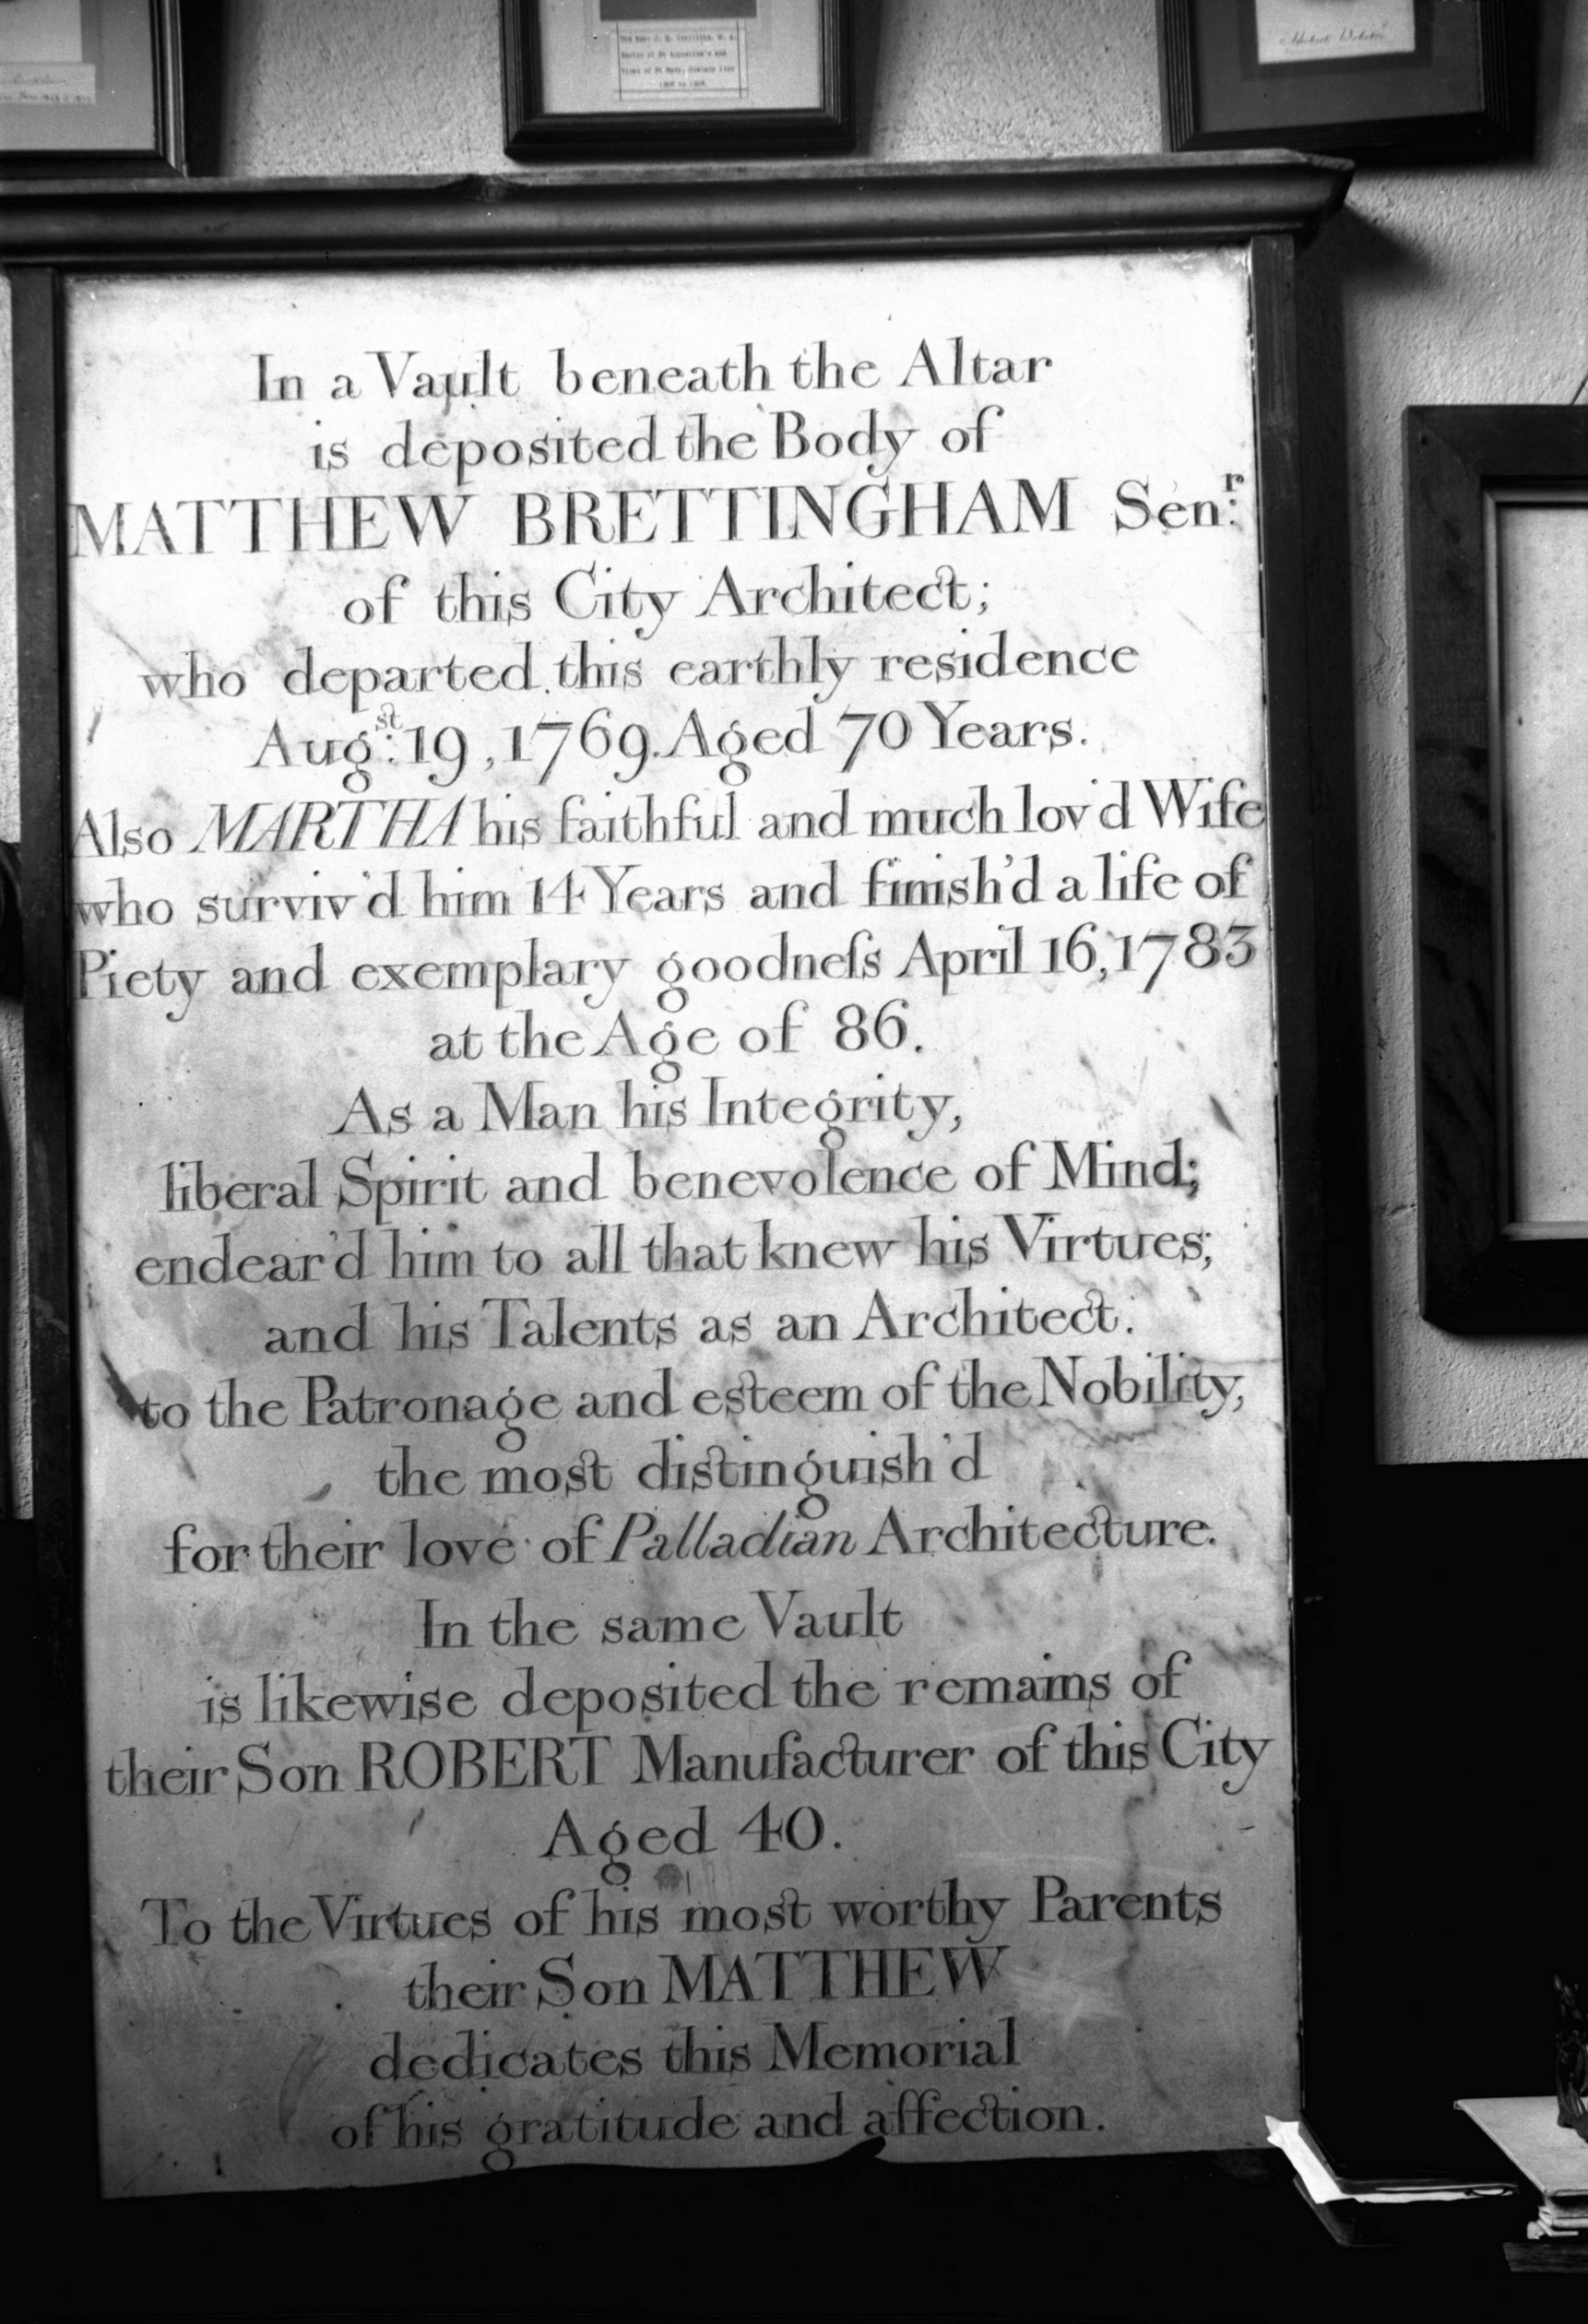 The Rev: J. H. Griffiths, M. A.
Rector of St Augustine's and
Vicar of St Mary, Coslany from
Herbert Webster
In a Vault beneath the Altar
is deposited the Body of
MATTHEW BRETTINGHAM Senr:
of this City Architect;
who departed this earthly residence
Augst: 19, 1769. Aged 70 Years.
Also MARTHA his faithful and much lov'd Wife
who surviv'd him 14 Years and finish'd a life of
Piety and exemplary goodneſs April 16, 1783
at the Age of 86.
As a Man his Integrity,
liberal Spirit and benevolence of Mind;
endear'd him to all that knew his Virtues;
and his Talents as an Architect.
to the Patronage and esteem of the Nobility,
the most distinguish'd
for their love of Palladian Architecture.
In the same Vault
is likewise deposited the remains of
their Son ROBERT Manufacturer of this City
Aged 40.
To the Virtues of his most worthy Parents
their Son MATTHEW
dedicates this Memorial
of his gratitude and affection.